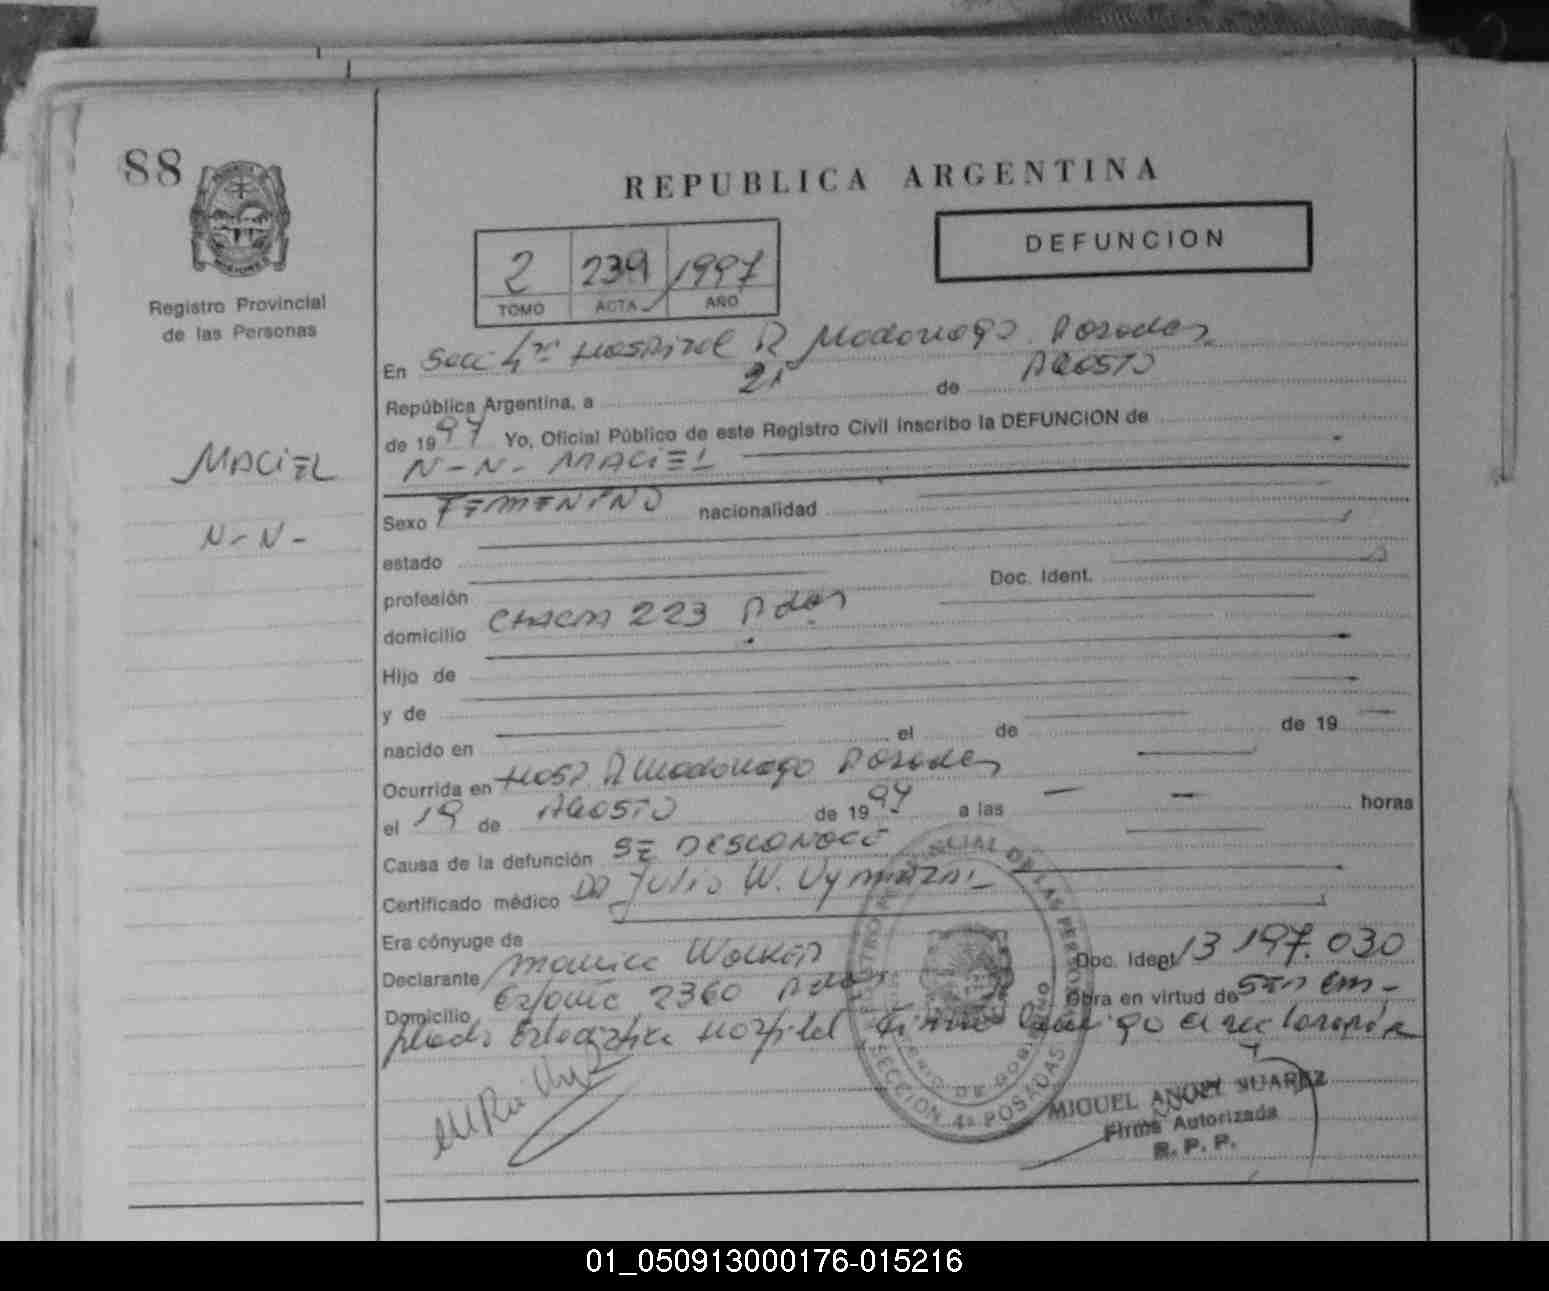 88
REPUBLICA ARGENTINA
DEFUNCION
2 239 1997
TOMO ACTA AÑO
Registro Provincial
de las Personas
En Secc 4ta Hospital R Madariaga. Posadas
República Argentina, a 21 de AGOSTO
de 1997 Yo, Oficial Público de este Registro Civil inscribo la DEFUNCION de
MACIEL
N-N- MACIEL
N-N-
Sexo FEMENINO nacionalidad
estado
profesión Doc. Ident.
domicilio CHACRA 223 Pdas
Hijo de
y de
nacido en el de de 19
Ocurrida en Hosp R Madariaga Posadas
el 19 de AGOSTO de 1997 a las horas
Causa de la defunción SE DESCONOCE
Certificado médico DR Julio W.
Era cónyuge de
Declarante Doc. Ident 13 197.030
Domicilio 2360 Pdas Obra en virtud de ser em-
pleado Hospital Firma
REGISTRO PROVINCIAL DE LAS PERSONAS
MINISTERIO DE GOBIERNO
SECCION 4a POSADAS
MIGUEL ANGEL SUAREZ
Firma Autorizada
R. P. P.
01_050913000176-015216